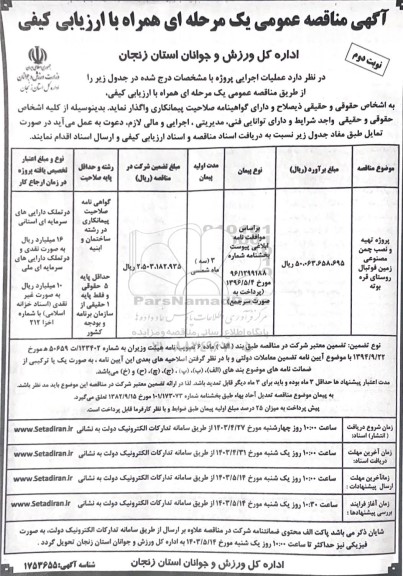 آگهی مناقصه عمومی یک مرحله ای همراه با ارزیابی کیفی
اداره کل ورزش و جوانان استان زنجان
نوبت دوم
در نظر دارد عملیات اجرایی پروژه با مشخصات درج شده در جدول زیر را
از طریق مناقصه عمومی یک مرحله ای همراه با ارزیابی کیفی،
به اشخاص حقوقی و حقیقی ذیصلاح و دارای گواهینامه صلاحیت پیمانکاری واگذار نماید. بدینوسیله از کلیه اشخاص
حقوقی و حقیقی واجد شرایط و دارای توانایی فنی، مدیریتی ، اجرایی و مالی لازم، دعوت به عمل می آید در صورت
تمایل طبق مفاد جدول زیر نسبت به دریافت اسناد مناقصه و اسناد ارزیابی کیفی و ارسال اسناد اقدام نمایند.
موضوع مناقصه
مبلغ برآورد (ریال)
نوع پیمان
مدت اولیه پیمان
مبلغ تضمین شرکت در مناقصه (ریال)
رشته و حداقل پایه صلاحیت
نوع و مبلغ اعتبار تخصیص یافته پروژه در زمان ارجاع کار
پروژه تهیه و نصب چمن مصنوعی زمین فوتبال روستای قره بوته
۵۰.۰۶۳.۶۵۸.۶۹۵
براساس موافقت نامه ابلاغی پیوست بخشنامه شماره ۹۶/۱۲۹۹۱۸۸ مورخ ۱۳۹۶/۵/۴ (پرداخت به صورت سرجمع)
۳ (سه) ماه شمسی
۲.۵۰۳.۱۸۲.۹۳۵ ریال
گواهی نامه صلاحیت پیمانکاری در رشته ساختمان و ابنیه
حداقل پایه ۵ حقوقی و فقط پایه ۱ حقیقی از سازمان برنامه و بودجه کشور
درتملک دارایی های سرمایه ای استانی
۱۶ میلیارد ریال به صورت نقدی و درتملک دارایی های سرمایه ای ملی
۱۰ میلیارد ریال به صورت غیر نقدی (اسناد خزانه اسلامی) با شماره اخزا ۲۱۲
نوع تضمین: تضمین معتبر شرکت در مناقصه طبق بند (الف) ماده ۶ تصویب نامه هیئت وزیران به شماره ۱۲۳۴۰۲/ت ۵۰۶۵۹ ه مورخ
۱۳۹۴/۹/۲۲ با موضوع آیین نامه تضمین معاملات دولتی و با در نظر گرفتن اصلاحیه های بعدی این آیین نامه ، به صورت یک یا ترکیبی از
ضمانت نامه های موضوع بند های (الف)، (ب)، (پ)، (ج)، (چ)، (ح) و (خ) می باشد.
مدت اعتبار پیشنهاد ها حداقل ۳ ماه بوده و باید برای ۳ ماه دیگر قابل تمدید باشد. لذا در ارائه تضمین معتبر شرکت در مناقصه این موضوع باید مد نظر باشد.
به پیمان موضوع مناقصه تعدیل آحاد بهاء طبق بخشنامه شماره ۱۰۱/۱۷۳۰۷۳ مورخ ۱۳۸۲/۹/۱۵ تعلق می‌گیرد.
پیش پرداخت به میزان ۲۵ درصد مبلغ اولیه پیمان طبق ضوابط و با نظر کارفرما قابل پرداخت است.
زمان شروع دریافت (انتشار) اسناد:
ساعت ۱۰:۰۰ روز چهارشنبه مورخ ۱۴۰۳/۴/۲۷ از طریق سامانه تدارکات الکترونیک دولت به نشانی www.Setadiran.ir
زمان آخرین مهلت دریافت اسناد:
ساعت ۱۰:۰۰ روز یک شنبه مورخ ۱۴۰۳/۴/۳۱ از طریق سامانه تدارکات الکترونیک دولت به نشانی www.Setadiran.ir
زمان آخرین مهلت ارسال پیشنهادات :
ساعت ۱۰:۰۰ روز یک شنبه مورخ ۱۴۰۳/۵/۱۴ از طریق سامانه تدارکات الکترونیک دولت به نشانی www.Setadiran.ir
زمان آغاز فرایند بررسی پیشنهادها :
ساعت ۱۰:۳۰ روز یک شنبه مورخ ۱۴۰۳/۵/۱۴ از طریق سامانه تدارکات الکترونیک دولت به نشانی www.Setadiran.ir
شایان ذکر می باشد پاکت الف محتوی ضمانتنامه شرکت در مناقصه علاوه بر ارسال از طریق سامانه تدارکات الکترونیک دولت، به صورت
فیزیکی نیز حداکثر تا ساعت ۱۰:۰۰ روز یک شنبه مورخ ۱۴۰۳/۵/۱۴ به اداره کل ورزش و جوانان استان زنجان تحویل گردد .
اداره کل ورزش و جوانان استان زنجان
شناسه آگهی: ۱۷۵۳۶۵۵